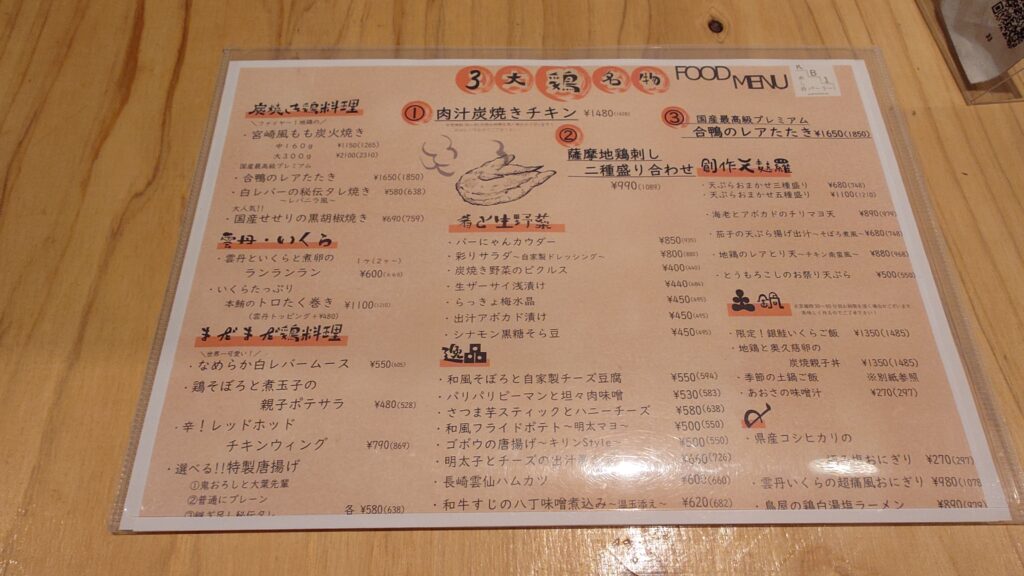 3大鶏名物
FOOD MENU
① 肉汁炭焼きチキン ¥1480
②
薩摩地鶏刺し
二種盛り合わせ
¥990(1089)
③ 国産最高級プレミアム
合鴨のレアたたき ¥1650(1850)
炭焼き鶏料理
・宮崎風もも炭火焼き
中160g ¥1150(1265)
大300g ¥2100(2310)
国産最高級プレミアム
・合鴨のレアたたき ¥1650(1850)
・白レバーの秘伝タレ焼き ¥580(638)
～レバニラ風～
大人気!!
・国産せせりの黒胡椒焼き ¥690(759)
雲丹・いくら
・雲丹といくらと煮卵の
ランランラン ¥600
・いくらたっぷり
本鮪のトロたく巻き ¥1100(1210)
(雲丹トッピング+¥480)
まだまだ鶏料理
＼世界一可愛い！／
・なめらか白レバームース ¥550(605)
・鶏そぼろと煮玉子の
親子ポテサラ ¥480(528)
・辛！レッドホッド
チキンウィング ¥790(869)
・選べる!!特製唐揚げ
①鬼おろしと大葉先輩
②普通にプレーン
各 ¥580(638)
肴と生野菜
・バーにゃんカウダー ¥850(935)
・彩りサラダ～自家製ドレッシング～ ¥800(880)
・炭焼き野菜のピクルス ¥400(440)
・生ザーサイ浅漬け ¥440(484)
・らっきょ梅水晶 ¥450(495)
・出汁アボカド漬け ¥450(495)
・シナモン黒糖そら豆 ¥450(495)
逸品
・和風そぼろと自家製チーズ豆腐 ¥550(594)
・パリパリピーマンと坦々肉味噌 ¥530(583)
・さつま芋スティックとハニーチーズ ¥580(638)
・和風フライドポテト～明太マヨ～ ¥500(550)
・ゴボウの唐揚げ～キリンStyle～ ¥500(550)
・明太子とチーズの出汁 ¥660(726)
・長崎雲仙ハムカツ ¥600(660)
・和牛すじの八丁味噌煮込み～温玉添え～ ¥620(682)
創作天麩羅
・天ぷらおまかせ三種盛り ¥680(748)
・天ぷらおまかせ五種盛り ¥1100(1210)
・海老とアボカドのチリマヨ天 ¥890(979)
・茄子の天ぷら揚げ出汁～そぼろ煮風～ ¥680(748)
・地鶏のレアとり天～チキン南蛮風～ ¥880(968)
・とうもろこしのお祭り天ぷら ¥500(550)
土鍋
・限定！銀鮭いくらご飯 ¥1350(1485)
・地鶏と奥久慈卵の
炭焼親子丼 ¥1350(1485)
・季節の土鍋ご飯 ※別紙参照
・あおさの味噌汁 ¥270(297)
〆
・県産コシヒカリの
塩おにぎり ¥270(297)
・雲丹いくらの超痛風おにぎり ¥980(1078
・鳥屋の鶏白湯塩ラーメン ¥890(979)